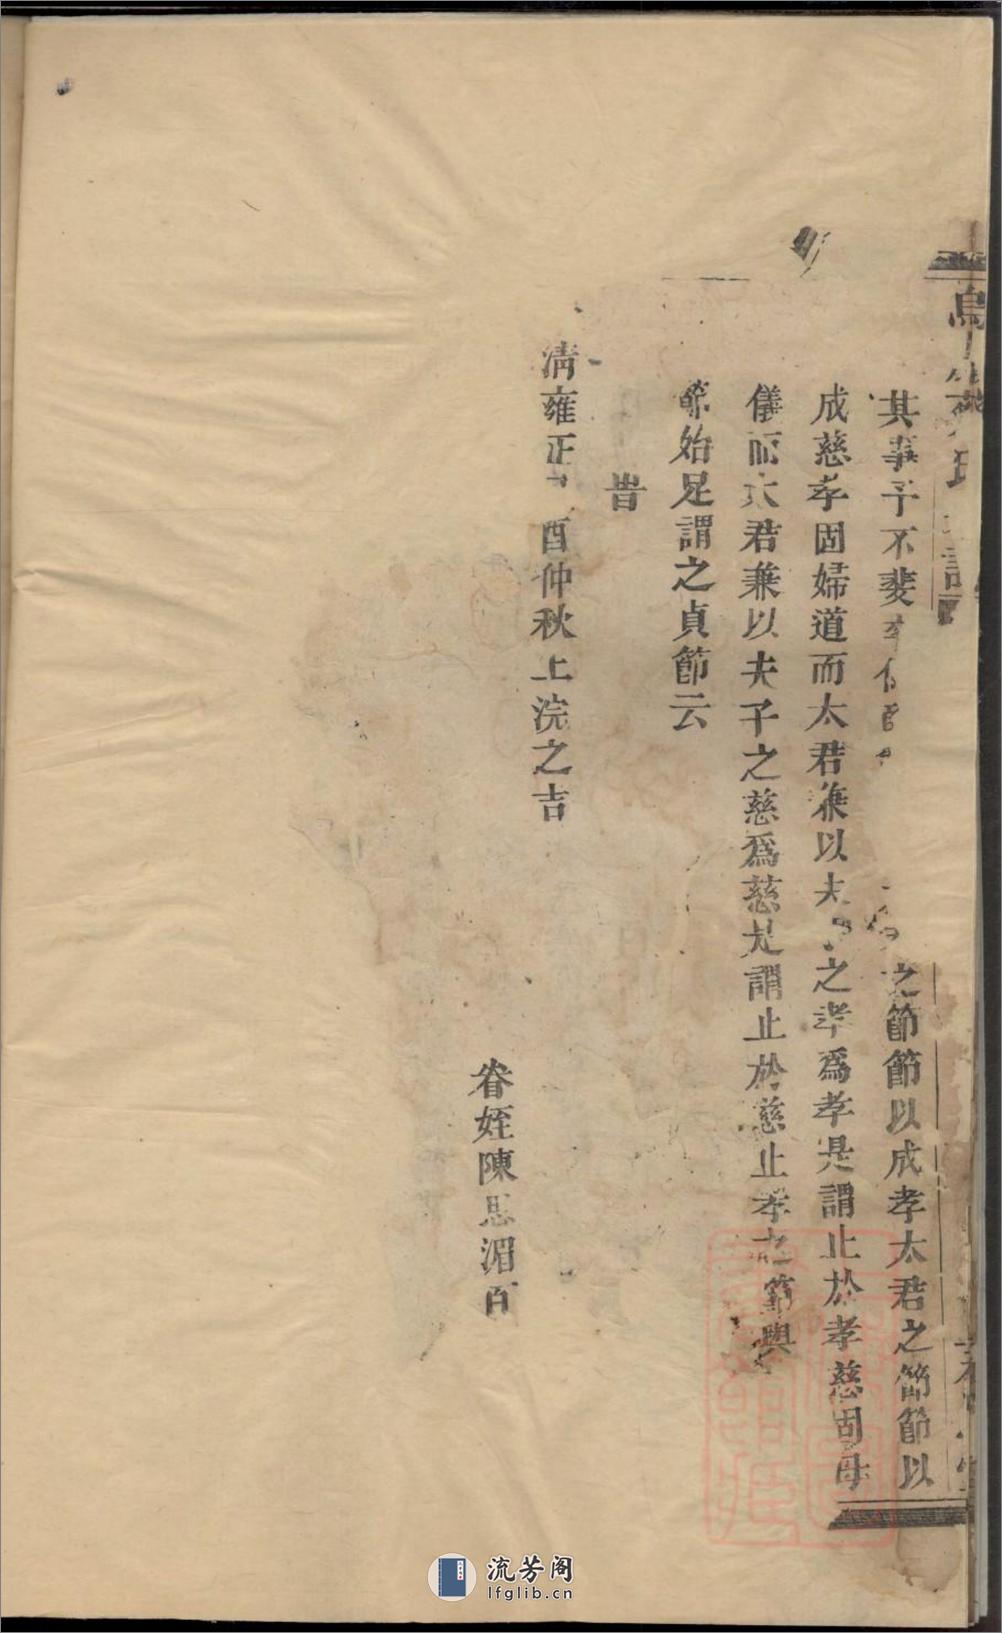 烏
其事予不斐
之節節以成孝太君之節節以
成慈孝固婦道而太君兼以夫
之孝爲孝是謂止於孝慈固母
儀而太君兼以夫子之慈爲慈是謂止於慈止孝之節與
節始足謂之貞節云
旹
清雍正
酉仲秋上浣之吉
眷姪陳思湄百
流芳阁
lfglib.cn